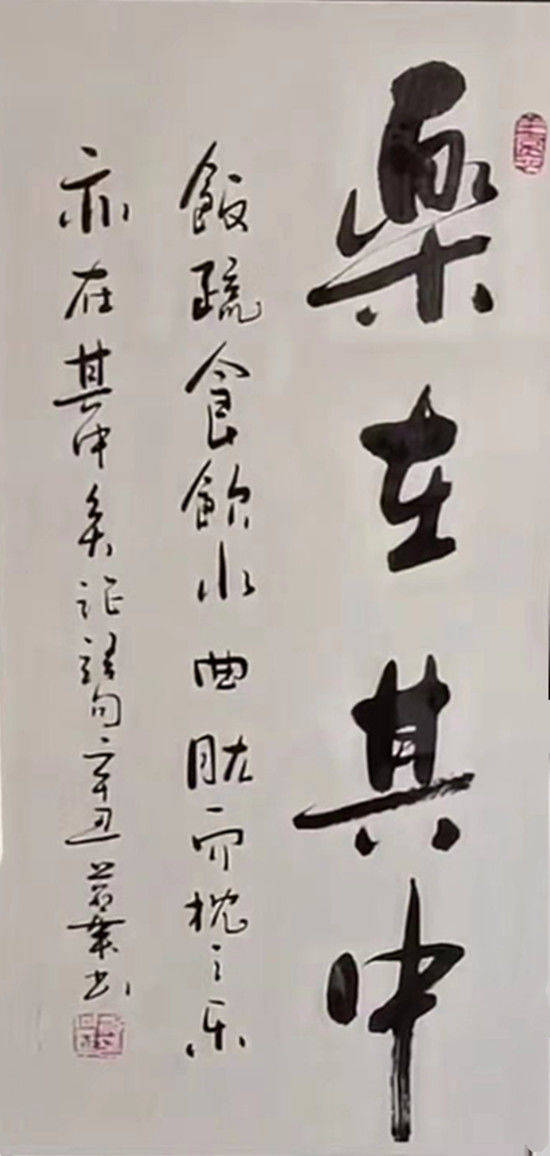 樂在其中
飯疏食飲水曲肱而枕之乐
亦在其中矣论語句辛丑书